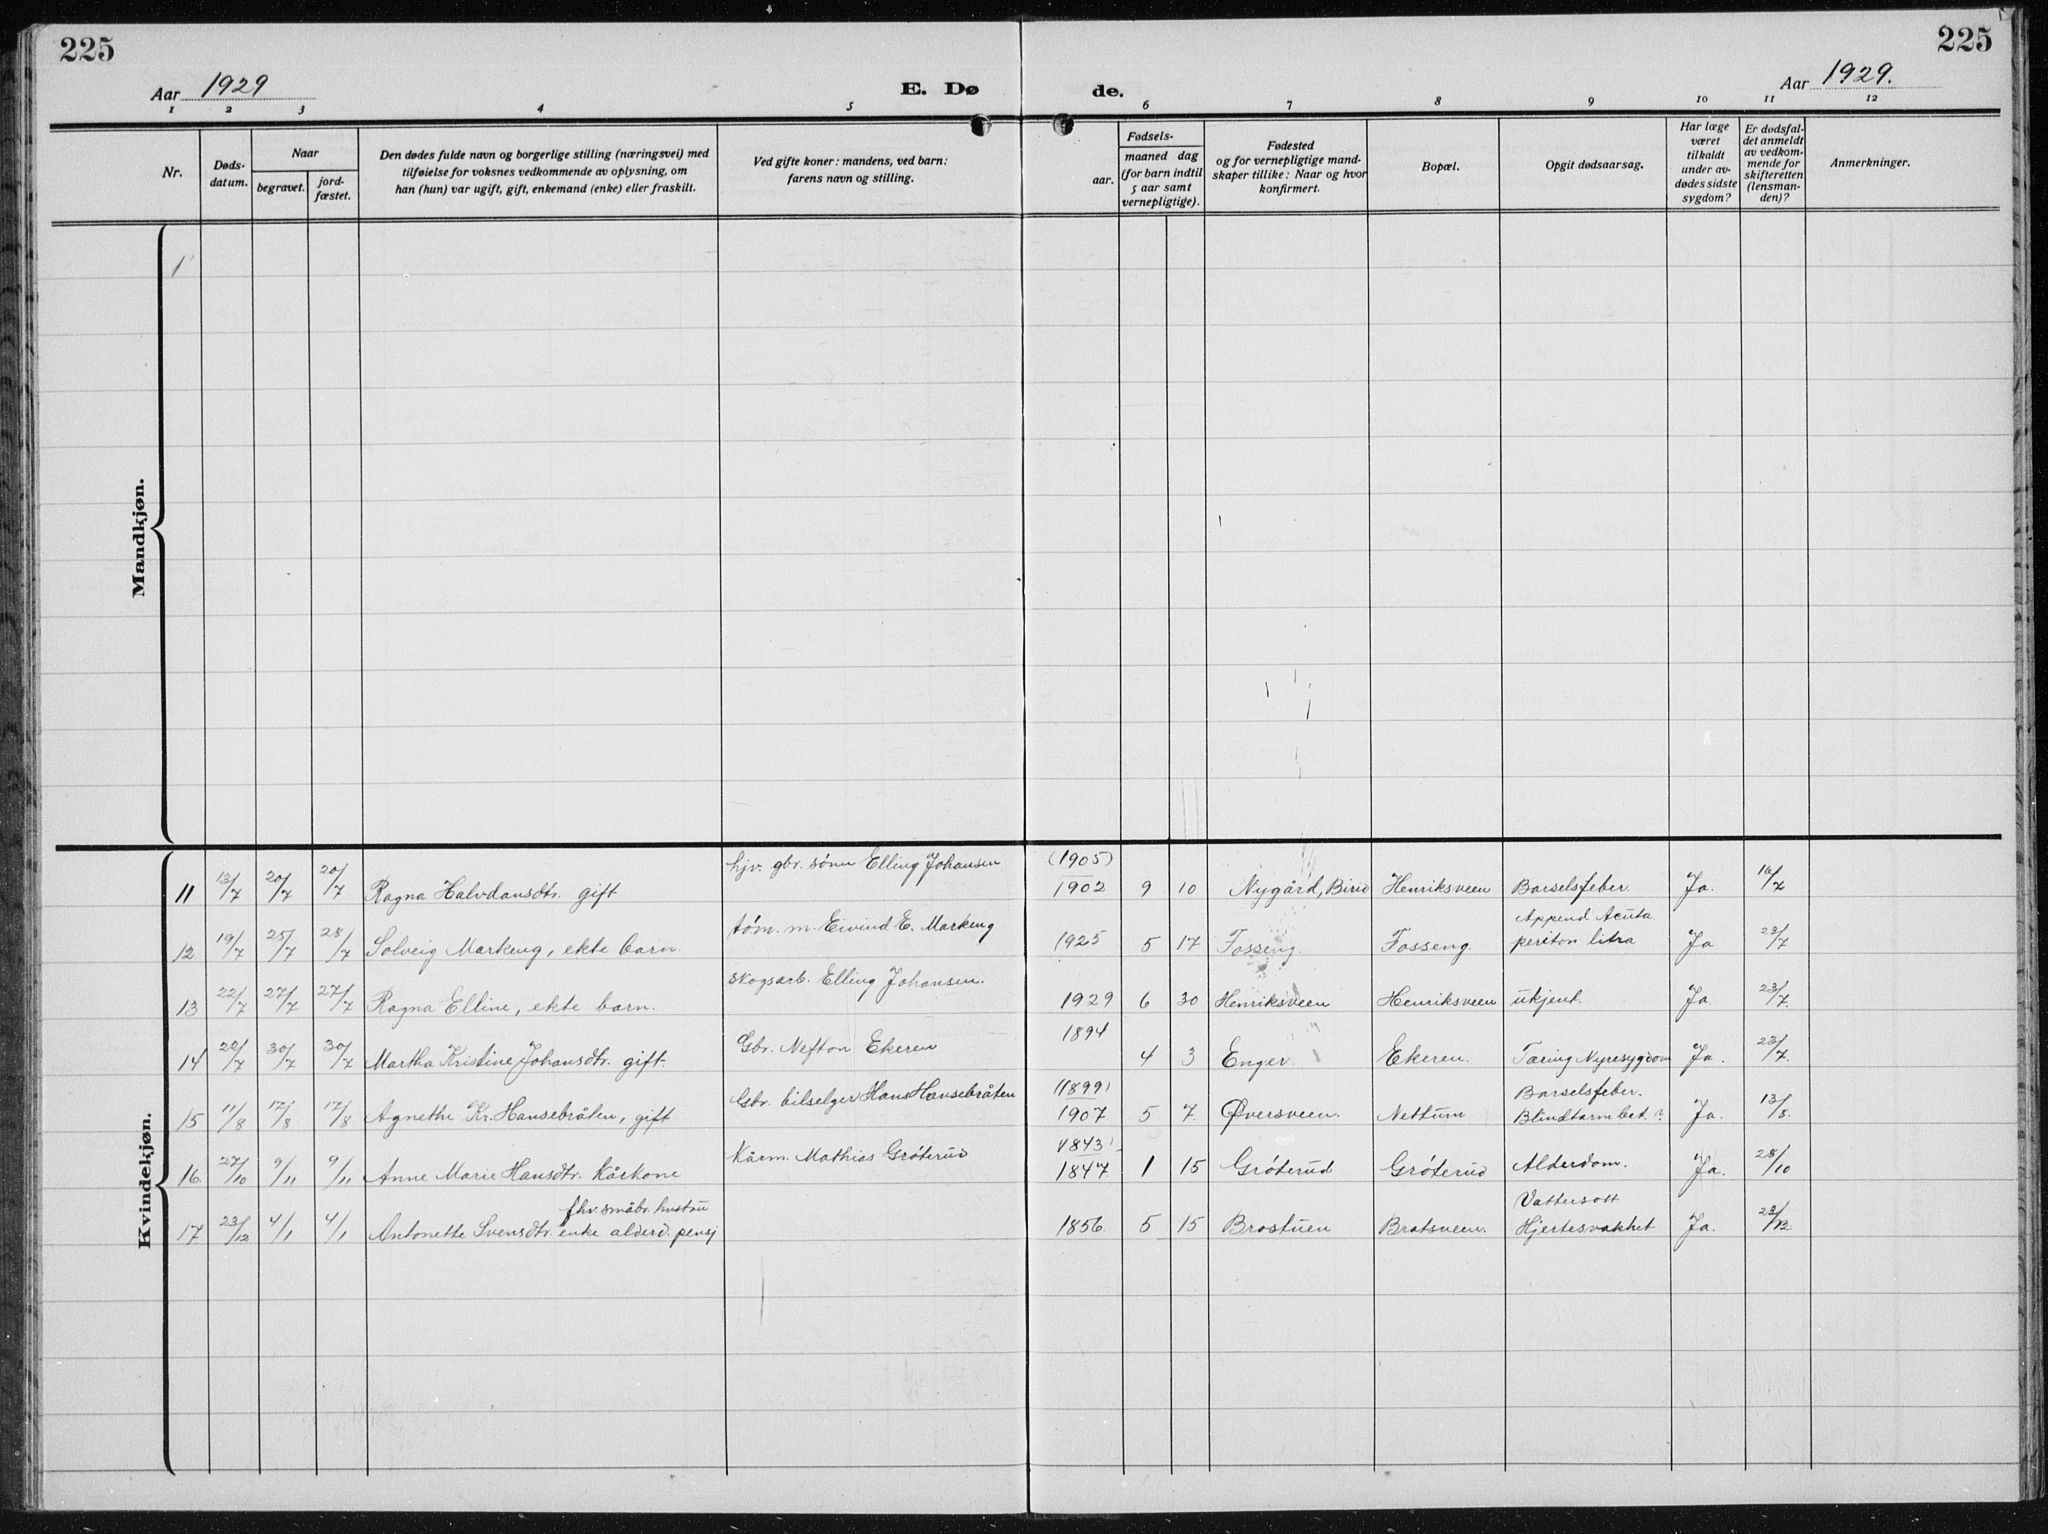 225
225
Aar 1929
E. Dø
de.
Aar 1929.
1 2 3 4 5 6 7 8 9 10 11 12
Nr.
Døds-
datum.
Naar
begravet.
jord-
fæstet.
Den dødes fulde navn og borgerlige stilling (næringsvei) med
tilføielse for voksnes vedkommende av oplysning, om
han (hun) var ugift, gift, enkemand (enke) eller fraskilt.
Ved gifte koner: mandens, ved barn:
farens navn og stilling.
Fødsels-
aar.
maaned dag
(for barn indtil
5 aar samt
vernepligtige).
Fødested
og for vernepligtige mand-
skaper tillike: Naar og hvor
konfirmert.
Bopæl.
Opgit dødsaarsag.
Har læge
været
tilkaldt
under av-
dødes sidste
sygdom?
Er dødsfal-
det anmeldt
av vedkom-
mende for
skifteretten
(lensman-
den)?
Anmerkninger.
Mandkjøn.
1
Kvindekjøn.
hjv. gbr. sønn Elling Johansen (1905)
11 13/7 20/7 20/7 Ragna Halvdansdtr. gift 1902 9 10 Nygård, Birid Henriksveen Barselsfeber. Ja. 16/7
tøm. m. Eivind E. Markeng Append Acuta
12 19/7 25/7 28/7 Solveig Markeng, ekte barn. 1925 5 17 Fosseng. Fosseng. periton litra Ja 23/7
skogsarb. Elling Johansen.
13 22/7 27/7 27/7 Ragna Elline, ekte barn. 1929 6 30 Henriksveen Henriksveen ukjent. Ja. 23/7.
Gbr. Nefton Ekeren 1894
14 22/7 30/7 30/7 Martha Kristine Johansdtr. gift. 4 3 Enger. Ekeren. Tæring Nyresygdom Ja. 23/7.
Gbr. bilselger Hans Hansebråten (1899) Barselsfeber.
15 11/8 17/8 17/8 Agnethe Kr. Hansebråten, gift 1907 5 7. Øversveen. Nettum Blindtarmbet. ? Ja. 13/8.
Kårm. Mathias Grøterud (1843)
16. 27/10 9/11 9/11 Anne Marie Hansdtr. Kårkone 1847 1 15 Grøterud Grøterud Alderdom. Ja. 28/10
fhv. småbr. hustru Vattersott
17 23/12 4/1 4/1 Antonette Svensdtr. enke alderd. pensj 1856. 5 15 Brostuen Bratsveen. Hjertesvakhet Ja. 23/12